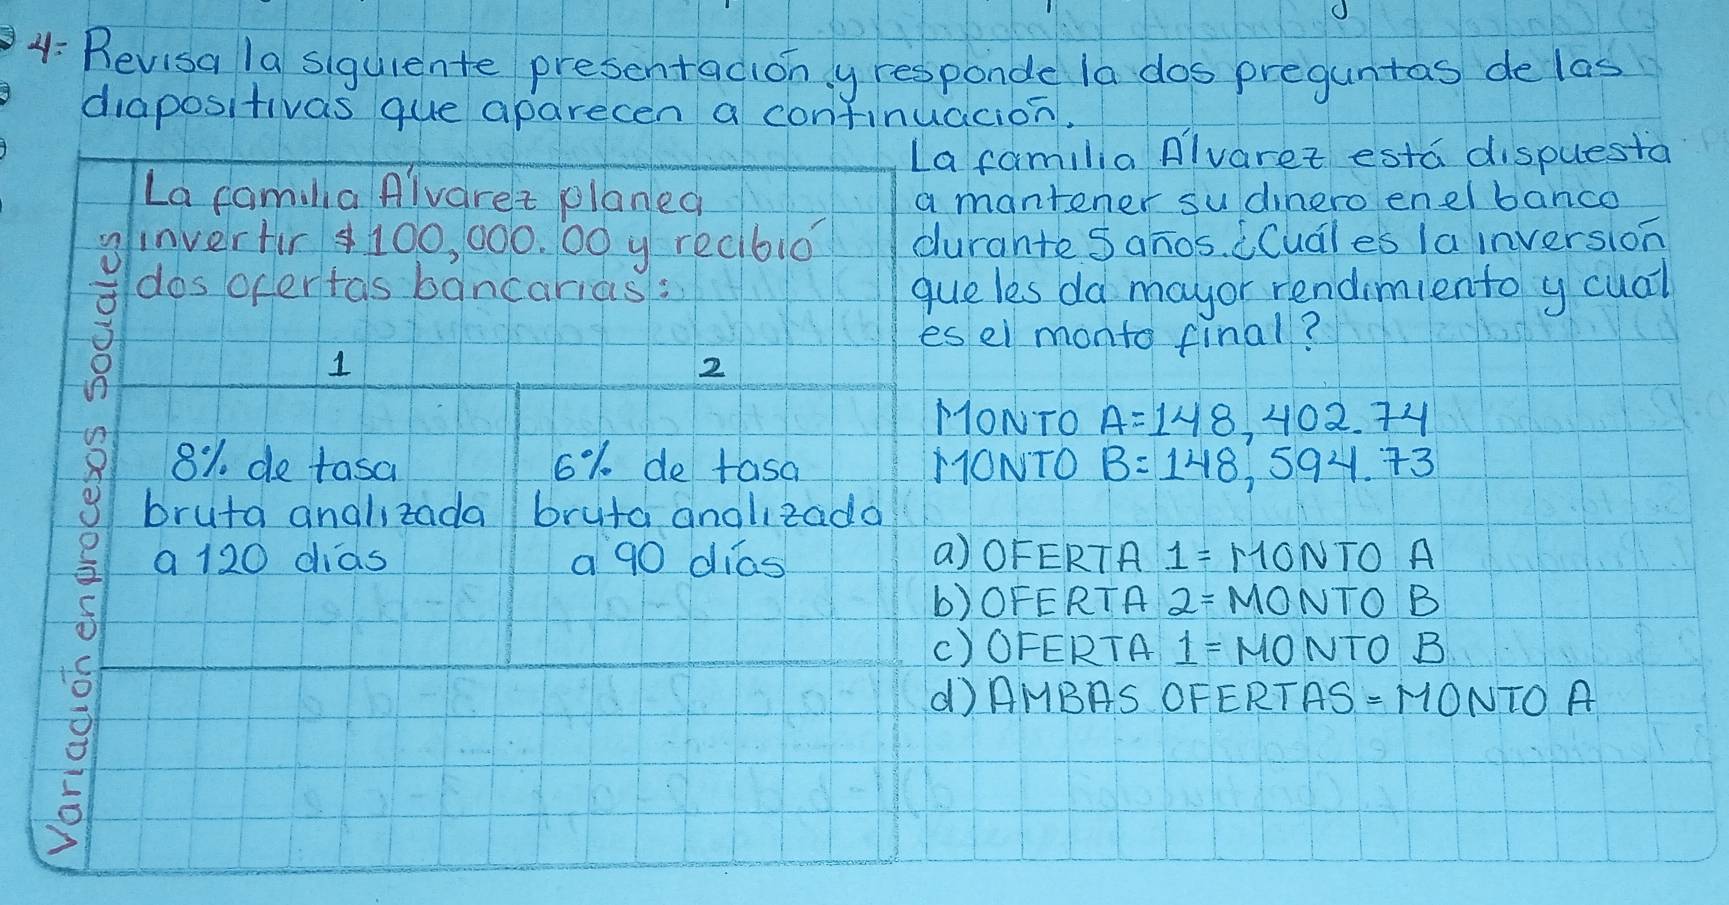 4.- Revisa la siguiente presentación y responde la dos preguntas de las
diapositivas que aparecen a continuación.
Variación en procesos sociales
La familia Álvarez planea
invertir $100,000.00 y recibió
dos ofertas bancarias:
1
2
8% de tasa
bruta analizada
a 120 días
6% de tasa
bruta analizada
a 90 días
La familia Álvarez está dispuesta
a mantener su dinero en el banco
durante 5 años. ¿Cuál es la inversión
que les da mayor rendimiento y cual
es el monto final?
MONTO A=148,402.74
MONTO B=148,594.73
a) OFERTA 1=MONTO A
b) OFERTA 2=MONTO B
c) OFERTA 1=MONTO B
d) AMBAS OFERTAS=MONTO A